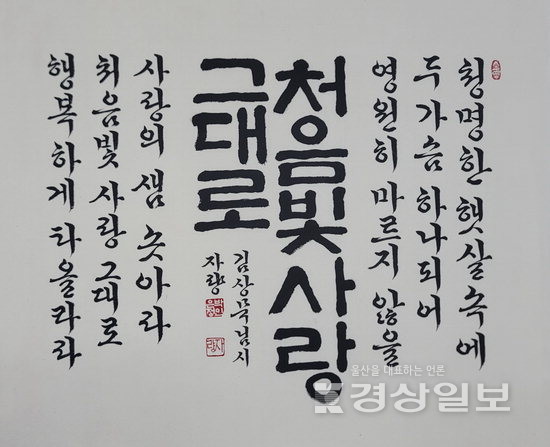 청명한 햇살 속에
두 가슴 하나되어
영원히 마르지 않을
처음빛 사랑
그대로
김상묵님 시
자량
사랑의 샘 솟아라
처음빛 사랑 그대로
행복하게 타올라라
울산을 대표하는 언론
경상일보